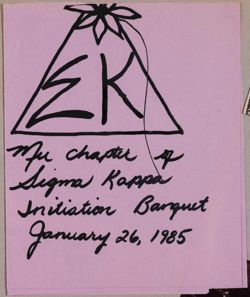 ΣK
Mu Chapter of
Sigma Kappa
Initiation Banquet
January 26, 1985